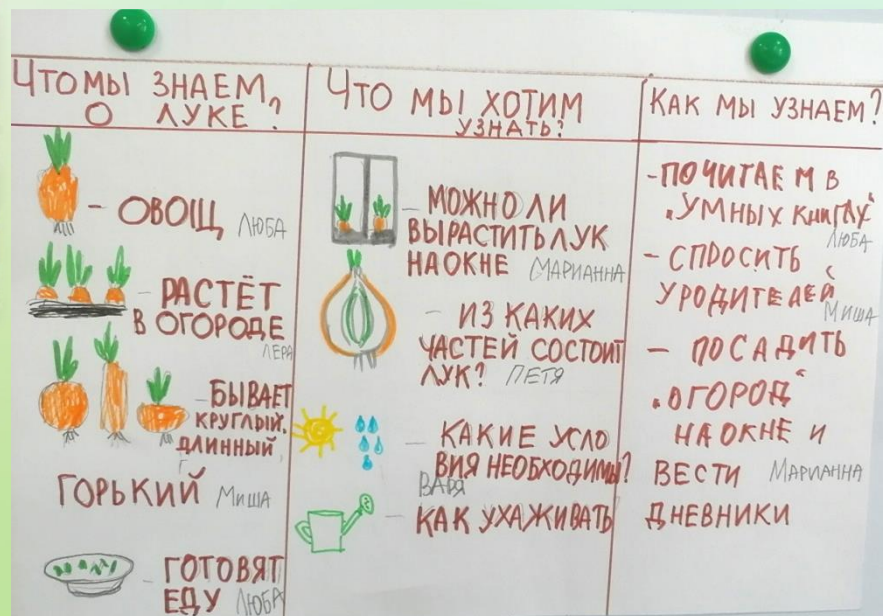 ЧТО МЫ ЗНАЕМ
О ЛУКЕ?
- ОВОЩ
ЛЮБА
- РАСТЁТ
В ОГОРОДЕ
ЛЕРА
- БЫВАЕТ
КРУГЛЫЙ,
ДЛИННЫЙ
ГОРЬКИЙ МИША
- ГОТОВЯТ
ЕДУ ЛЮБА
ЧТО МЫ ХОТИМ
УЗНАТЬ?
- МОЖНО ЛИ
ВЫРАСТИТЬ ЛУК
НА ОКНЕ МАРИАННА
- ИЗ КАКИХ
ЧАСТЕЙ СОСТОИТ
ЛУК? ПЕТЯ
- КАКИЕ УСЛО
ВИЯ НЕОБХОДИМЫ?
ВАРЯ
- КАК УХАЖИВАТЬ
КАК МЫ УЗНАЕМ?
- ПОЧИТАЕМ В
"УМНЫХ КНИГАХ"
ЛЮБА
- СПРОСИТЬ
У РОДИТЕЛЕЙ
МИША
- ПОСАДИТЬ
"ОГОРОД"
НА ОКНЕ И
ВЕСТИ МАРИАННА
ДНЕВНИКИ